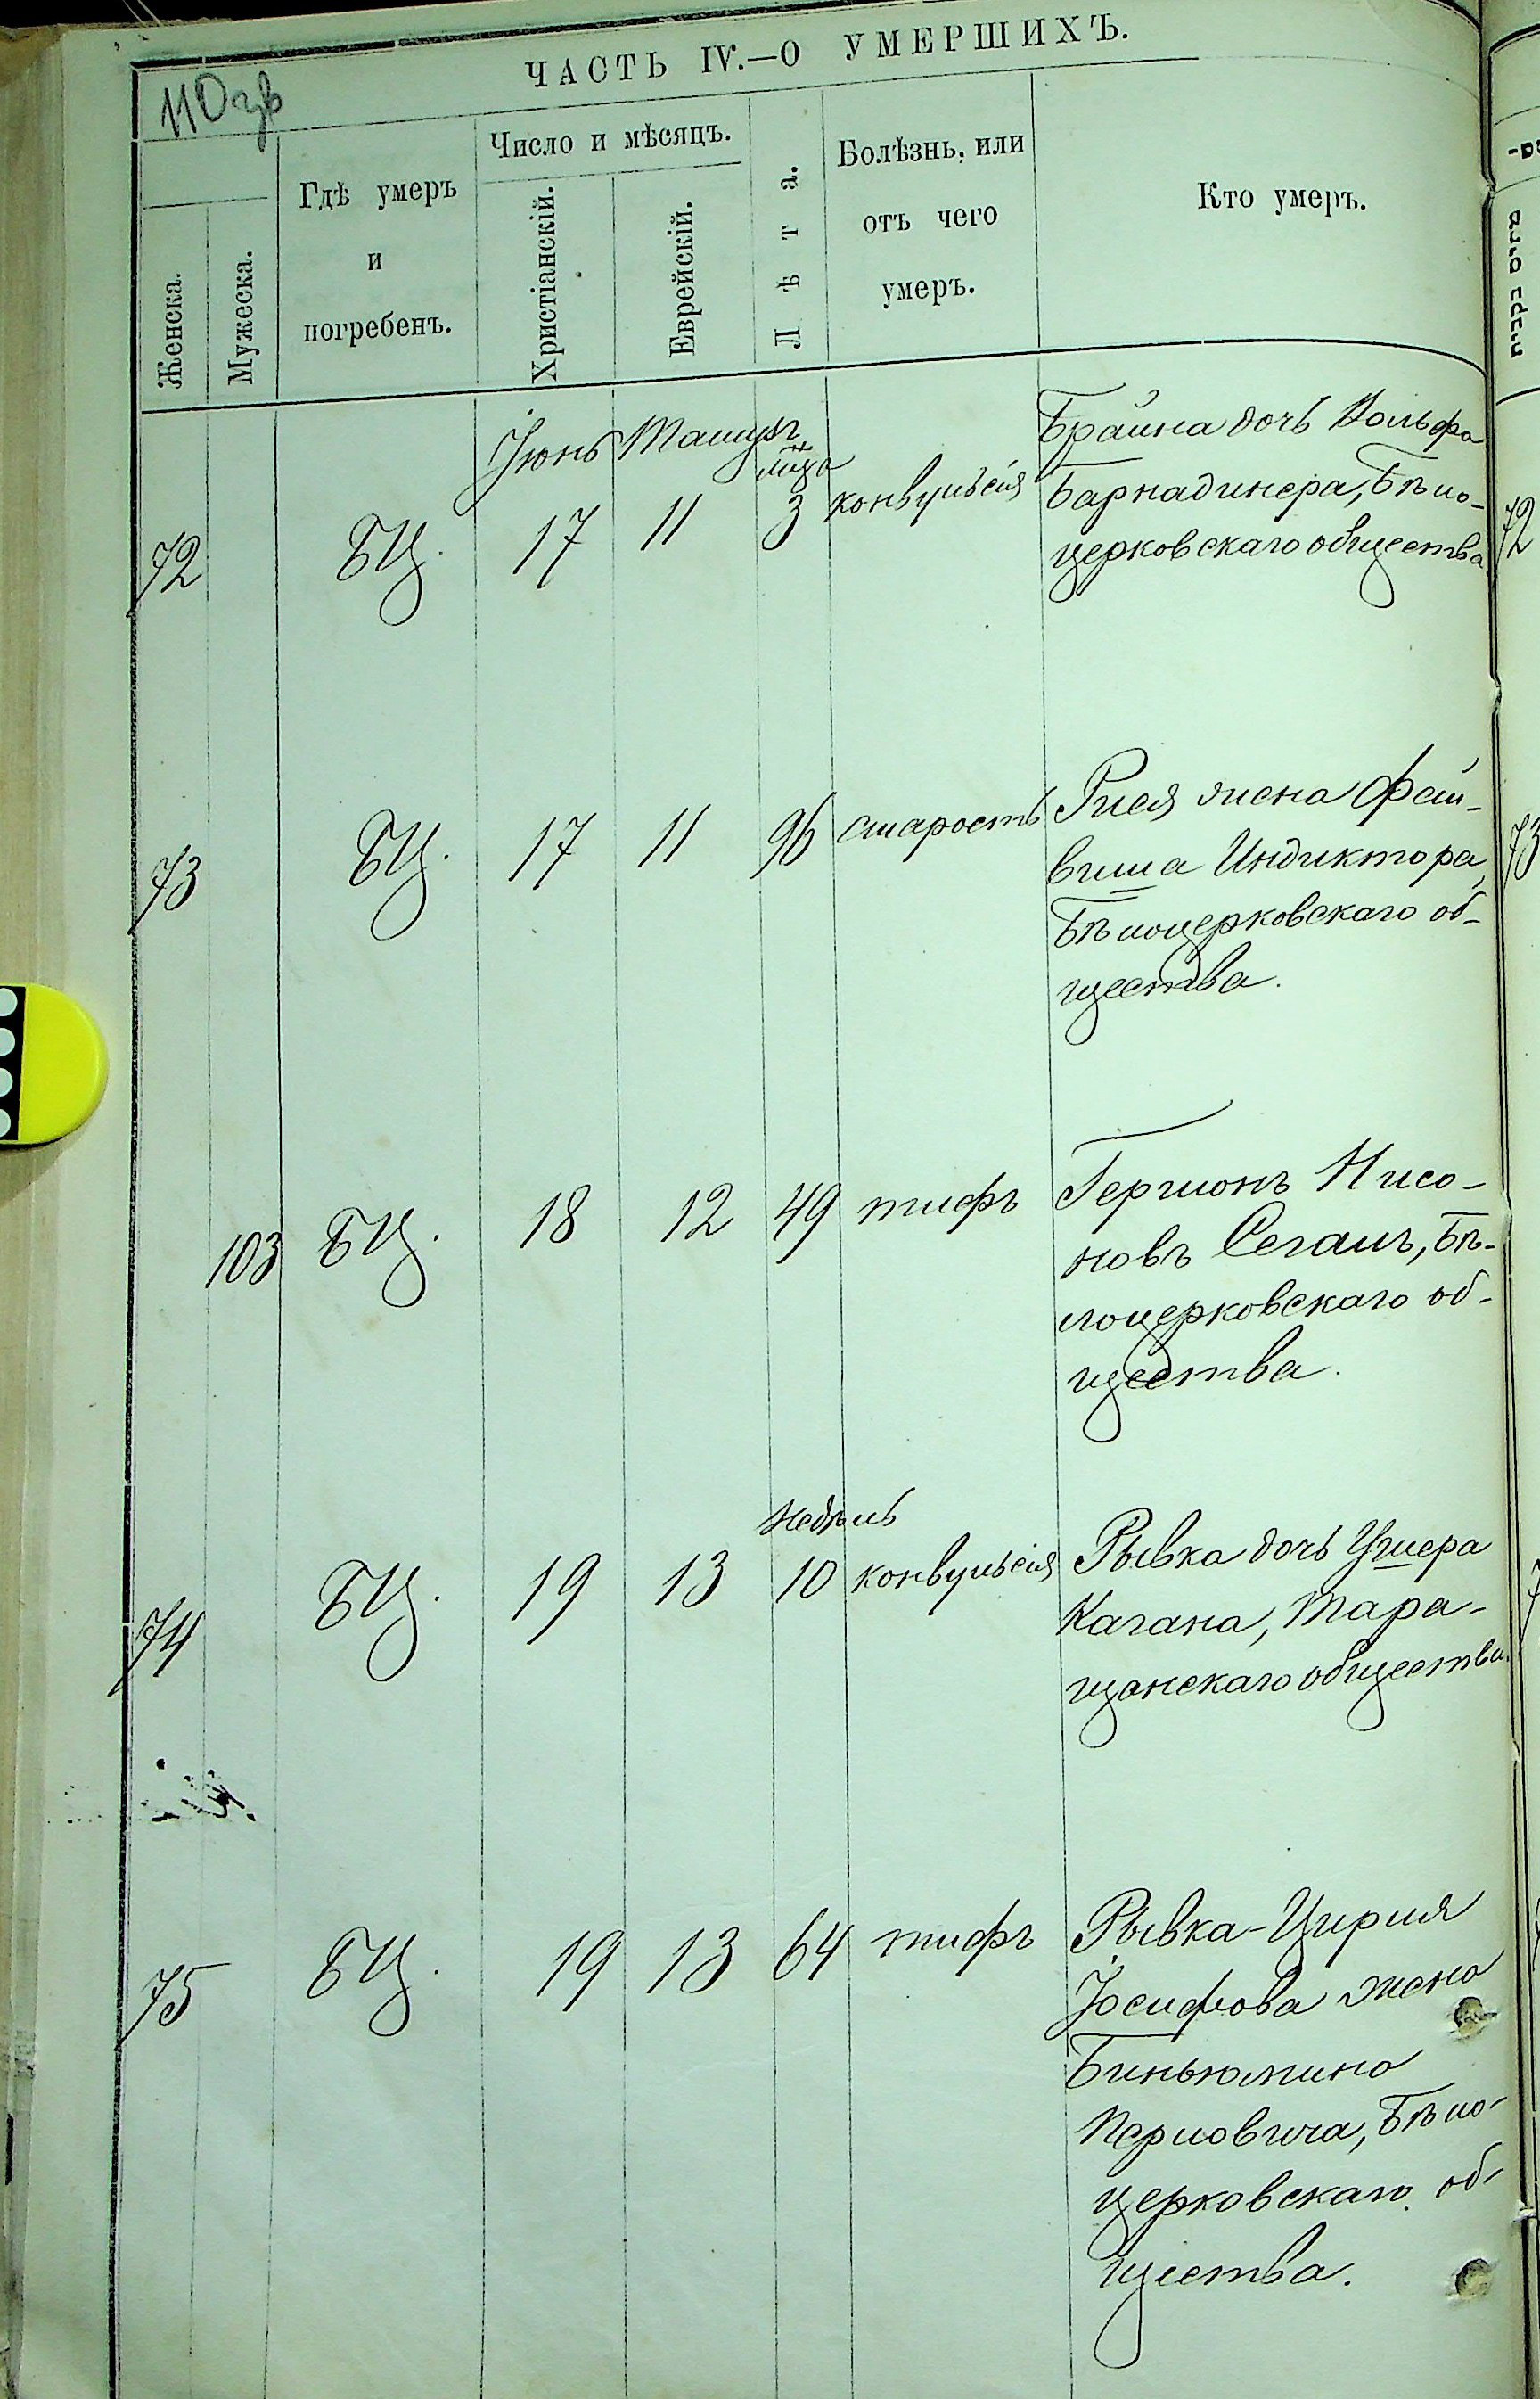 110 зв
ЧАСТЬ IV.—О УМЕРШИХЪ.
Женска.
Мужеска.
Гдѣ умеръ
и
погребенъ.
Число и мѣсяцъ.
Христіанскій.
Еврейскій.
Лѣта.
Болѣзнь, или
отъ чего
умеръ.
Кто умеръ.
Іюнь Тамузъ
72 БЦ. 17 11 м-ца 3 конвульсія Брайна дочь Вольфа
Барнадинера, Бѣло-
церковскаго общества.
73 БЦ. 17 11 96 старость Рися жена Фай-
виша Индиктора,
Бѣлоцерковскаго об-
щества.
103 БЦ. 18 12 49 тифъ Гершонъ Нисо-
новъ Сегалъ, Бѣ-
лоцерковскаго об-
щества.
74 БЦ. 19 13 недѣль 10 конвульсія Рывка дочь Ушера
Кагана, Тара-
щанскаго общества.
75 БЦ. 19 13 64 тифъ Рывка-Цирля
Іосифова жена
Биньюмина
Перловича, Бѣло-
церковскаго об-
щества.
72
73